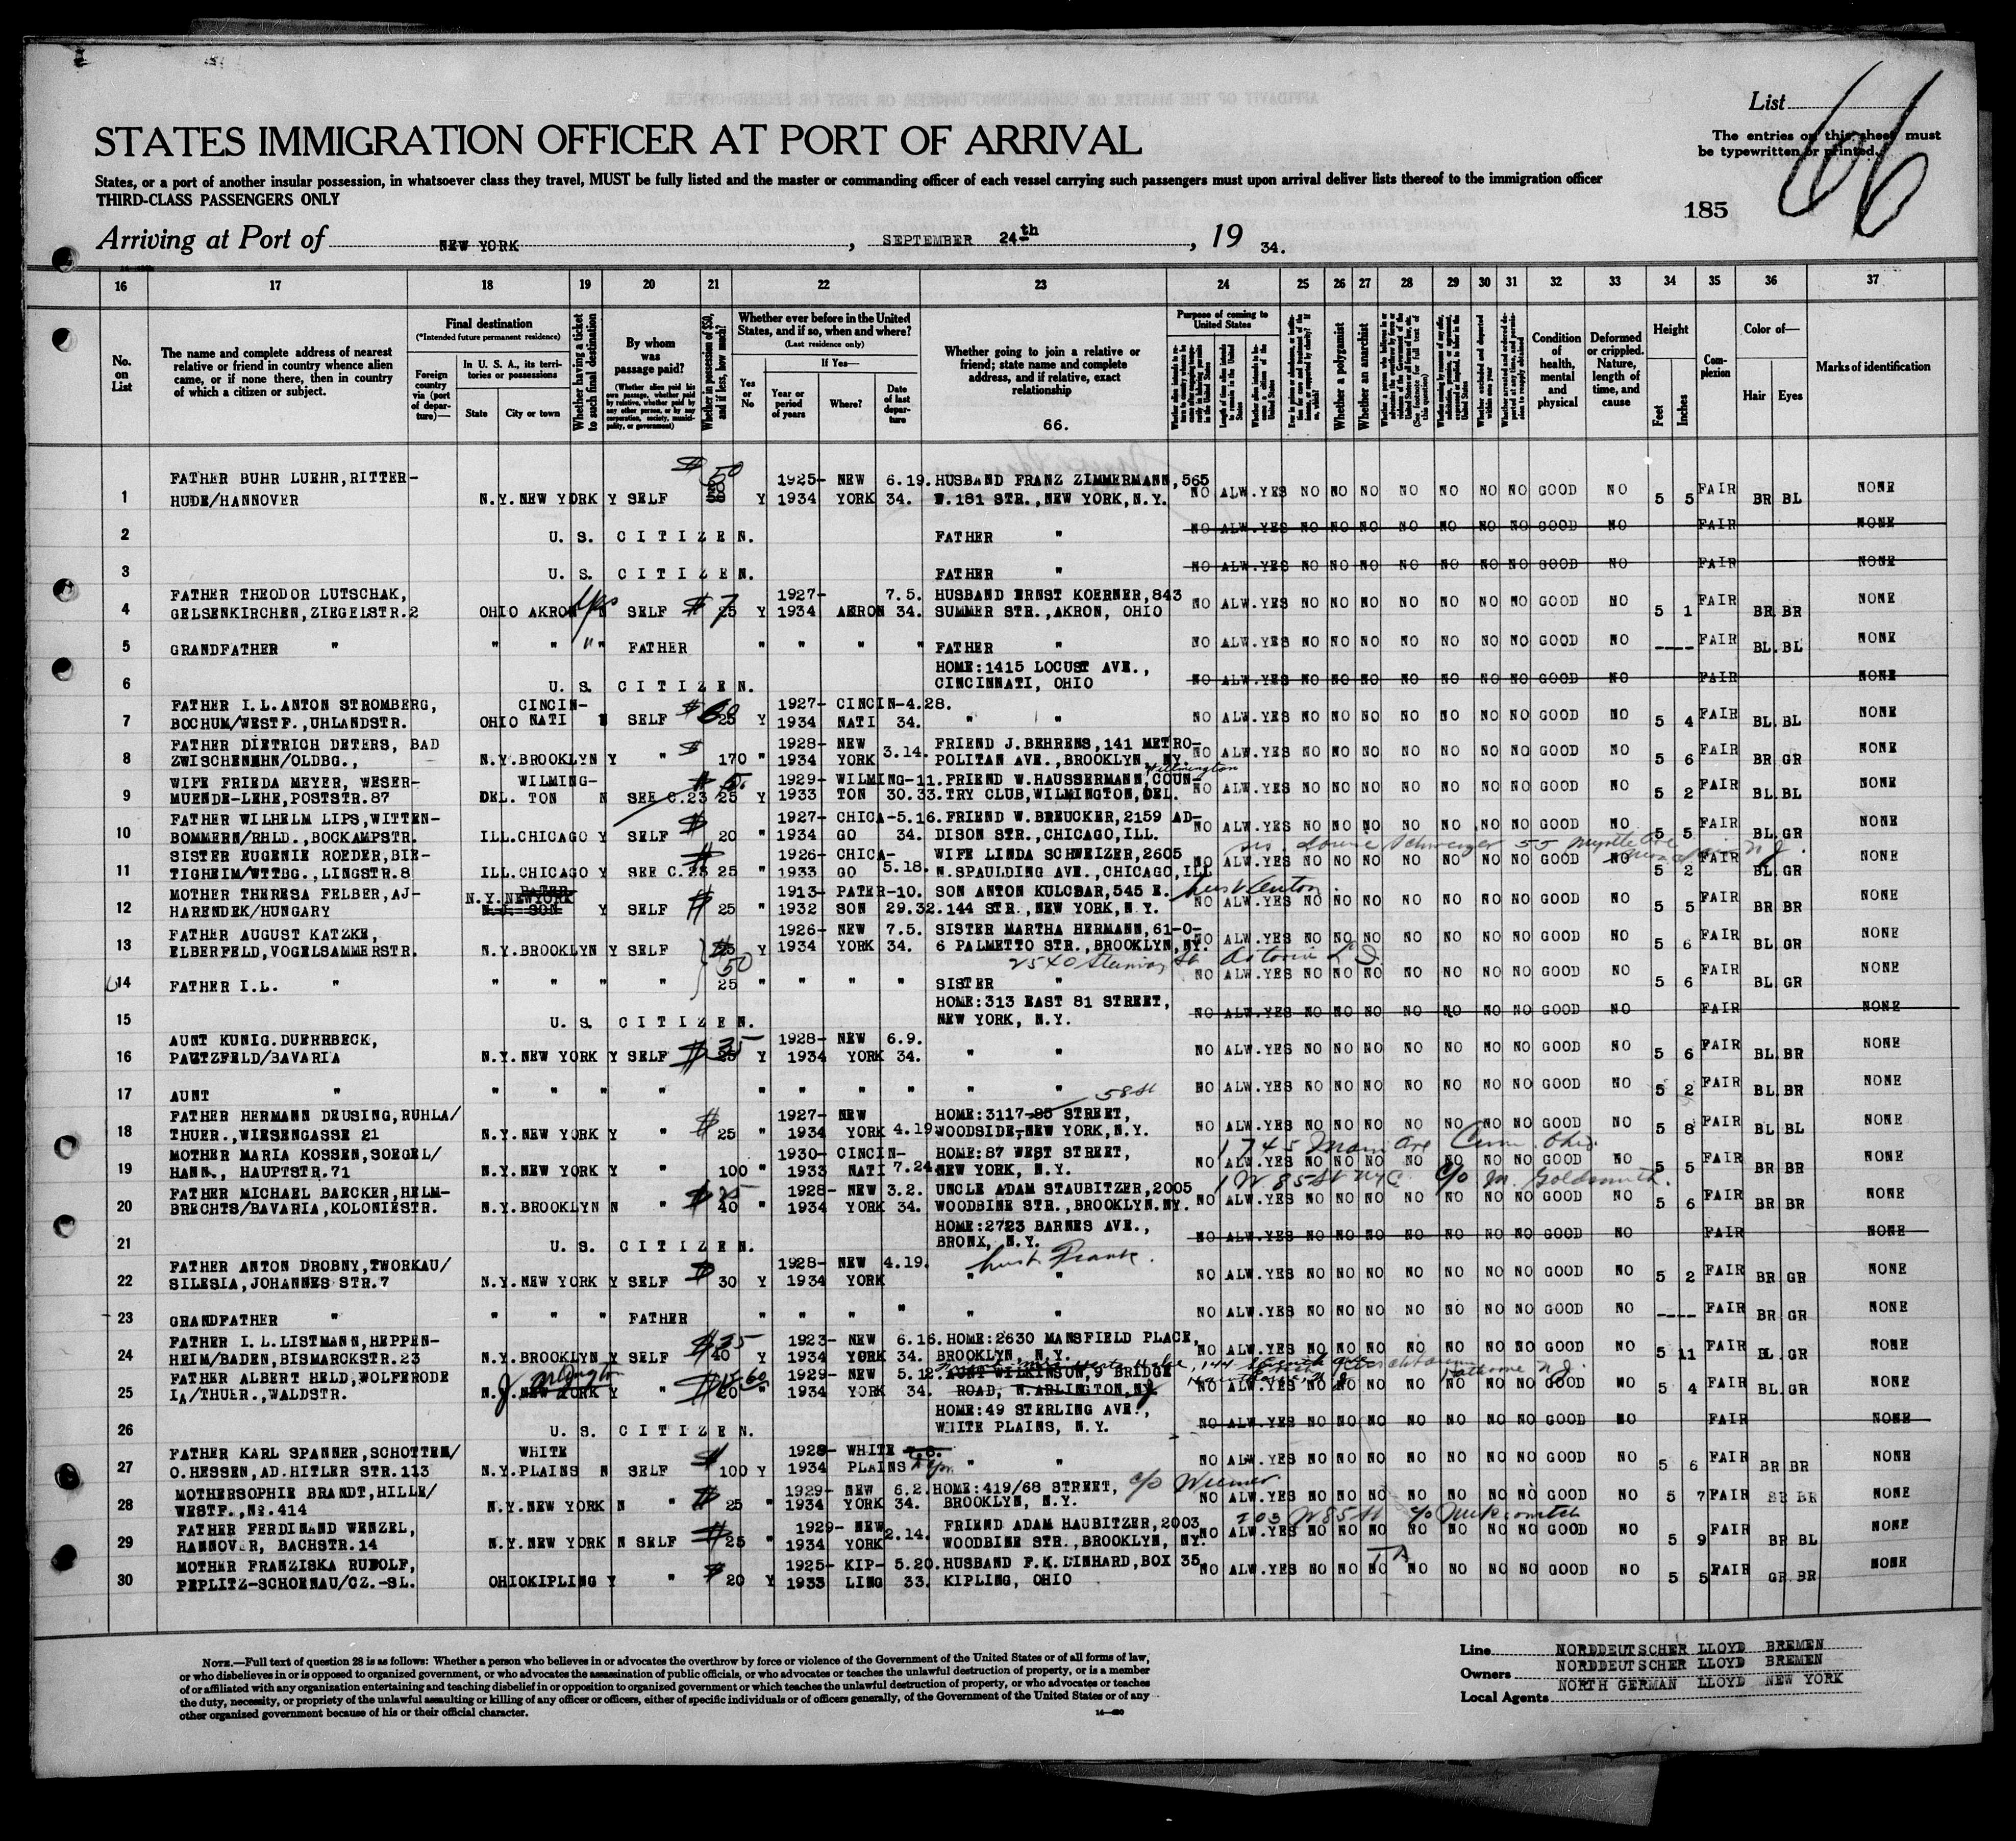 List
66
The entries on this sheet must
be typewritten or printed.
STATES IMMIGRATION OFFICER AT PORT OF ARRIVAL
States, or a port of another insular possession, in whatsoever class they travel, MUST be fully listed and the master or commanding officer of each vessel carrying such passengers must upon arrival deliver lists thereof to the immigration officer
THIRD-CLASS PASSENGERS ONLY
185
Arriving at Port of NEW YORK, SEPTEMBER 24th, 19 34.
16 17 18 19 20 21 22 23 24 25 26 27 28 29 30 31 32 33 34 35 36 37
No. on List
The name and complete address of nearest relative or friend in country whence alien came, or if none there, then in country of which a citizen or subject.
Final destination
(*Intended future permanent residence)
Foreign country via (port of departure)—
In U. S. A., its territories or possessions
State City or town
Whether having a ticket to such final destination
By whom was passage paid?
(Whether alien paid his own passage, whether paid by relative, whether paid by any other person, or by any corporation, society, municipality, or government)
Whether in possession of $50, and if less, how much?
Whether ever before in the United States, and if so, when and where?
(Last residence only)
Yes or No
If Yes—
Year or period of years
Where?
Date of last departure
Whether going to join a relative or friend; state name and complete address, and if relative, exact relationship
66.
Purpose of coming to United States
Whether a polygamist
Whether an anarchist
Condition of health, mental and physical
Deformed or crippled. Nature, length of time, and cause
Height
Feet Inches
Complexion
Color of—
Hair Eyes
Marks of identification
1 FATHER BUHR LUEHR, RITTER- $ 50 1925- NEW 6.19. HUSBAND FRANZ ZIMMERMANN, 565
HUDE/HANNOVER N.Y. NEW YORK Y SELF Y 1934 YORK 34. W.181 STR., NEW YORK, N.Y. NO ALW. YES NO NO NO NO NO NO NO GOOD NO 5 5 FAIR BR BL NONE
2 U. S. CITIZEN. FATHER " NO ALW. YES NO NO NO NO NO NO NO GOOD NO FAIR NONE
3 U. S. CITIZEN. FATHER " NO ALW. YES NO NO NO NO NO NO NO GOOD NO FAIR NONE
4 FATHER THEODOR LUTSCHAK, 1927- 7.5. HUSBAND ERNST KOERNER, 843
GELSENKIRCHEN, ZIEGELSTR.2 OHIO AKRON N SELF $ 7 25 Y 1934 AKRON 34. SUMMER STR., AKRON, OHIO NO ALW. YES NO NO NO NO NO NO NO GOOD NO 5 1 FAIR BR BR NONE
5 GRANDFATHER " " " " " FATHER " " " " FATHER " NO ALW. YES NO NO NO NO NO NO NO GOOD NO ---- FAIR BL. BL NONE
HOME: 1415 LOCUST AVE.,
6 U. S. CITIZEN. CINCINNATI, OHIO NO ALW. YES NO NO NO NO NO NO NO GOOD NO FAIR NONE
7 FATHER I.L. ANTON STROMBERG, CINCIN- 1927- CINCIN- 4.28.
BOCHUM/WESTF., UHLANDSTR. OHIO NATI N SELF $ 25 Y 1934 NATI 34. " " NO ALW. YES NO NO NO NO NO NO NO GOOD NO 5 4 FAIR BL. BL NONE
8 FATHER DIETRICH DETERS, BAD 1928- NEW 3.14. FRIEND J. BEHRENS, 141 METRO-
ZWISCHENEHN/OLDBG., N.Y. BROOKLYN Y " $ 170 " 1934 YORK POLITAN AVE., BROOKLYN, NY. NO ALW. YES NO NO NO NO NO NO NO GOOD NO 5 6 FAIR BR GR NONE
9 WIFE FRIEDA MEYER, WESER- WILMING- 1929- WILMING- 11. FRIEND W. HAUSSERMANN, COUN- Wilmington
MUENDE-LEHE, POSTSTR.87 DEL. TON N SEE C.23 $ 25 Y 1933 TON 30.33. TRY CLUB, WILMINGTON, DEL. NO ALW. YES NO NO NO NO NO NO NO GOOD NO 5 2 FAIR BL. BL NONE
10 FATHER WILHELM LIPS, WITTEN- 1927- CHICA- 5.16. FRIEND W. BREUCKER, 2159 AD-
BOMMERN/RHLD., BOCKAMPSTR. ILL. CHICAGO Y SELF $ 20 " 1934 GO 34. DISON STR., CHICAGO, ILL. NO ALW. YES NO NO NO NO NO NO NO GOOD NO 5 5 FAIR BL. GR NONE
sis. Louise Schweizer 55 Myrtle Ave N.J.
11 SISTER EUGENIE ROEDER, BIE- 1926- CHICA- WIFE LINDA SCHWEIZER, 2605
TIGHEIM/WTTBG., LINGSTR.8 ILL. CHICAGO Y SEE C.23 $ 25 " 1933 GO 5.18. N. SPAULDING AVE., CHICAGO, ILL NO ALW. YES NO NO NO NO NO NO NO GOOD NO 5 2 FAIR BL. GR NONE
12 MOTHER THERESA FELBER, AJ- N.Y. NEWYORK PATER 1913- PATER- 10. SON ANTON KULCSAR, 545 E. husb Anton
HARENDEK/HUNGARY N.J. SON Y SELF $ 25 " 1932 SON 29.32. 144 STR., NEW YORK, N.Y. NO ALW. YES NO NO NO NO NO NO NO GOOD NO 5 5 FAIR BR BR NONE
13 FATHER AUGUST KATZKE, 1926- NEW 7.5. SISTER MARTHA HERMANN, 61-0-
ELBERFELD, VOGELSAMMERSTR. N.Y. BROOKLYN Y SELF $ 25 Y 1934 YORK 34. 6 PALMETTO STR., BROOKLYN, NY. NO ALW. YES NO NO NO NO NO NO NO GOOD NO 5 6 FAIR BL. GR NONE
50 2540 Steinway St Astoria L I.
14 FATHER I.L. " " " " " 25 " " " " SISTER " NO ALW. YES NO NO NO NO NO NO NO GOOD NO 5 6 FAIR BL GR NONE
HOME: 313 EAST 81 STREET,
15 U. S. CITIZEN. NEW YORK, N.Y. NO ALW. YES NO NO NO NO NO NO NO GOOD NO FAIR NONE
16 AUNT KUNIG. DUERRBECK, 1928- NEW 6.9.
PAUTZFELD/BAVARIA N.Y. NEW YORK Y SELF $ 35 Y 1934 YORK 34. " " NO ALW. YES NO NO NO NO NO NO NO GOOD NO 5 6 FAIR BL. BR NONE
17 AUNT " " " " " " " " " " " NO ALW. YES NO NO NO NO NO NO NO GOOD NO 5 2 FAIR BL. BR NONE
58 St
18 FATHER HERMANN DEUSING, RUHLA/ 1927- NEW HOME: 3117-85 STREET,
THUER., WIESENGASSE 21 N.Y. NEW YORK Y " $ 25 " 1934 YORK 4.19. WOODSIDE, NEW YORK, N.Y. NO ALW. YES NO NO NO NO NO NO NO GOOD NO 5 8 FAIR BL. BL NONE
1745 Main Ave Cinn. Ohio
19 MOTHER MARIA KOSSEN, SOEGEL/ 1930- CINCIN- HOME: 87 WEST STREET,
HANN., HAUPTSTR.71 N.Y. NEW YORK Y " 100 " 1933 NATI 7.24. NEW YORK, N.Y. NO ALW. YES NO NO NO NO NO NO NO GOOD NO 5 5 FAIR BR BR NONE
1 W. 85 St NYC c/o M. Goldsmith.
20 FATHER MICHAEL BAECKER, HELM- 1928- NEW 3.2. UNCLE ADAM STAUBITZER, 2005
BRECHTS/BAVARIA, KOLONIESTR. N.Y. BROOKLYN N " $ 40 " 1934 YORK 34. WOODBINE STR., BROOKLYN. NY. NO ALW. YES NO NO NO NO NO NO NO GOOD NO 5 6 FAIR BR BR NONE
HOME: 2723 BARNES AVE.,
21 U. S. CITIZEN. BRONX, N.Y. NO ALW. YES NO NO NO NO NO NO NO GOOD NO FAIR NONE
22 FATHER ANTON DROBNY, TWORKAU/ 1928- NEW 4.19. husb. Frank.
SILESIA, JOHANNES STR.7 N.Y. NEW YORK Y SELF $ 30 Y 1934 YORK " " NO ALW. YES NO NO NO NO NO NO NO GOOD NO 5 2 FAIR BR GR NONE
23 GRANDFATHER " " " " FATHER " " " " " " NO ALW. YES NO NO NO NO NO NO NO GOOD NO ---- FAIR BR GR NONE
24 FATHER I. L. LISTMANN, HEPPEN- $ 35 1923- NEW 6.16. HOME: 2630 MANSFIELD PLACE,
HEIM/BADEN, BISMARCKSTR.23 N.Y. BROOKLYN Y SELF 40 Y 1934 YORK 34. BROOKLYN, N.Y. NO ALW. YES NO NO NO NO NO NO NO GOOD NO 5 11 FAIR BL. GR NONE
25 FATHER ALBERT HELD, WOLFERODE Arlington 60 1929- NEW 5.12. AUNT WILKINSON, 9 BRIDGE
IA/THUER., WALDSTR. N.J. NEW YORK Y " $ 1934 YORK 34. ROAD, N. ARLINGTON, NJ NO ALW. YES NO NO NO NO NO NO NO GOOD NO 5 4 FAIR BL. GR NONE
HOME: 49 STERLING AVE.,
26 U. S. CITIZEN. WHITE PLAINS, N.Y. NO ALW. YES NO NO NO NO NO NO NO GOOD NO FAIR NONE
27 FATHER KARL SPANNER, SCHOTTEN/ WHITE 1928- WHITE
O. HESSEN, AD. HITLER STR.113 N.Y. PLAINS N SELF $ 100 Y 1934 PLAINS " " NO ALW. YES NO NO NO NO NO NO NO GOOD NO 5 6 FAIR BR BR NONE
28 MOTHERSOPHIE BRANDT, HILLE/ 1929- NEW 6.2. HOME: 419/68 STREET, c/o Wiemer.
WESTF., No.414 N.Y. NEW YORK N " $ 25 " 1934 YORK 34. BROOKLYN, N.Y. NO ALW. YES NO NO NO NO NO NO NO GOOD NO 5 7 FAIR BR BR NONE
203 W 85 St c/o
29 FATHER FERDINAND WENZEL, 1929- NEW 2.14. FRIEND ADAM HAUBITZER, 2003
HANNOVER, BACHSTR.14 N.Y. NEW YORK N SELF $ 25 " 1934 YORK WOODBINE STR., BROOKLYN, NY. NO ALW. YES NO NO NO NO NO NO NO GOOD NO 5 9 FAIR BR BL NONE
30 MOTHER FRANZISKA RUDOLF, 1925- KIP- 5.20. HUSBAND F.K. LINHARD, BOX 35,
PEPLITZ-SCHOENAU/CZ.-SL. OHIO KIPLING Y " $ 20 Y 1933 LING 33. KIPLING, OHIO NO ALW. YES NO NO NO NO NO NO NO GOOD NO 5 5 FAIR GR. BR NONE
NOTE.—Full text of question 28 is as follows: Whether a person who believes in or advocates the overthrow by force or violence of the Government of the United States or of all forms of law,
or who disbelieves in or is opposed to organized government, or who advocates the assassination of public officials, or who advocates or teaches the unlawful destruction of property, or is a member
of or affiliated with any organization entertaining and teaching disbelief in or opposition to organized government or which teaches the unlawful destruction of property, or who advocates or teaches
the duty, necessity, or propriety of the unlawful assaulting or killing of any officer or officers, either of specific individuals or of officers generally, of the Government of the United States or of any
other organized government because of his or their official character.
Line NORDDEUTSCHER LLOYD BREMEN
Owners NORDDEUTSCHER LLOYD BREMEN
Local Agents NORTH GERMAN LLOYD NEW YORK